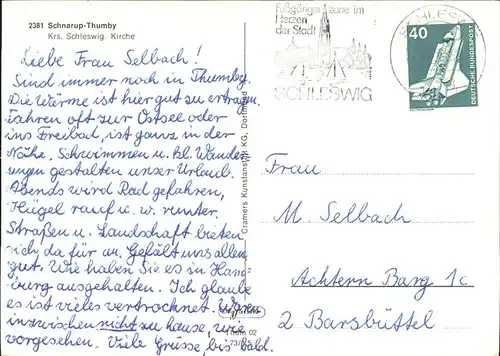 2381 Schnarup-Thumby
Krs. Schleswig. Kirche
Liebe Frau Selbach!
Sind immer noch in Thumby.
Die Wärme ist hier gut zu ertragen.
Fahren oft zur Ostsee oder
ins Freibad, ist ganz in der
Nähe. Schwimmen u. kl. Wander
ungen gestalten unser Urlaub.
Abends wird Rad gefahren,
Hügel rauf u. w. runter.
Straßen u. Landschaft bieten
sich da für an. Gefällt uns allen
gut. Wie haben Sie es in Ham-
burg ausgehalten. Ich glaube
es ist vieles vertrocknet. Waren
inzwischen nicht zu hause, wie
vorgesehen. Viele Grüsse, bis bald.
Cramers Kunstanstalt KG, Dortmund
Thum 02
Fußgängerzone im
Herzen
der Stadt
SCHLESWIG
SCHLESWIG
40
DEUTSCHE BUNDESPOST
Frau
M. Selbach
Achtern Barg 1c
2 Barsbüttel